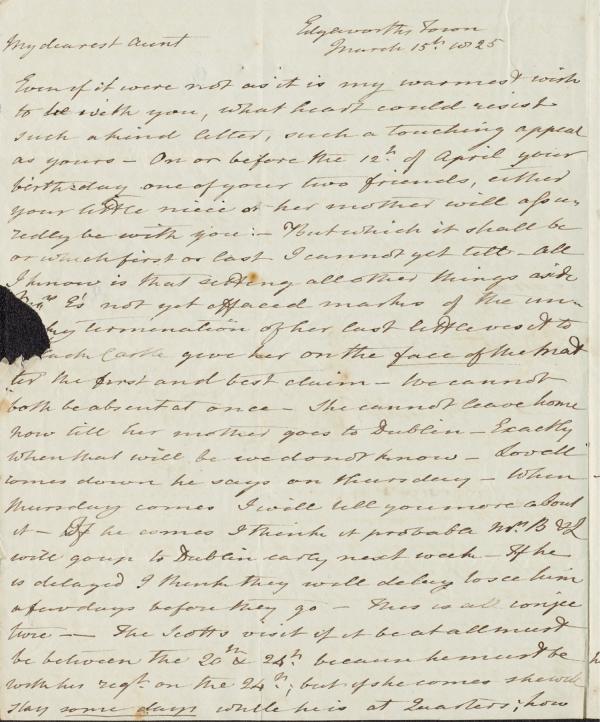 Edgeworths Town
March 15th 1825
My dearest Aunt
Even if it were not as it is my warmest wish
to be with you, what heart could resist
such a kind letter, such a touching appeal
as yours – On or before the 12th of April your
birthday one of your two friends, either
your little niece or her mother will assu
redly be with you – But which it shall be
or which first or last I cannot yet tell – All
I know is that setting all other things aside
Mrs E's not yet effaced marks of the un-
termination of her last little visit to
Castle give her on the face of the mat
ter the first and best claim – We cannot
both be absent at once – She cannot leave home
now till her mother goes to Dublin – Exactly
when that will be we do not know – Lovell
comes down he says on Thursday – When
Thursday comes I will tell you more about
it – If he comes I think it probable Mrs B &
will go up to Dublin early next week – If he
is delayed I think they will delay to see him
a few days before they go – This is all conjec
ture – The Scotts visit if it be at all must
be between the 20th & 24th because he must be
with his regt. on the 24th; but if she comes she will
stay some days while he is at Quarters; how